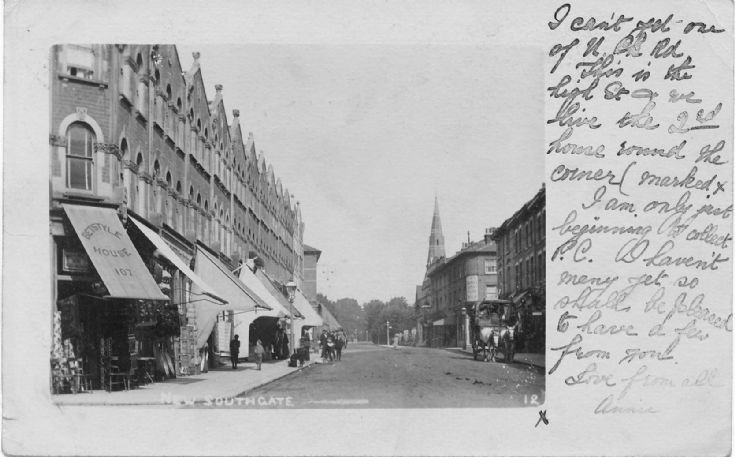 I can't get one
of N. Pk Rd
This is the
high St & we
live the 2nd
house round the
corner (marked x
I am only just
beginning to collect
P.C. I haven't
meny yet so
shall be pleased
to have a few
from you.
Love from all
Annie
HOUSE
107
NEW SOUTHGATE
12
x